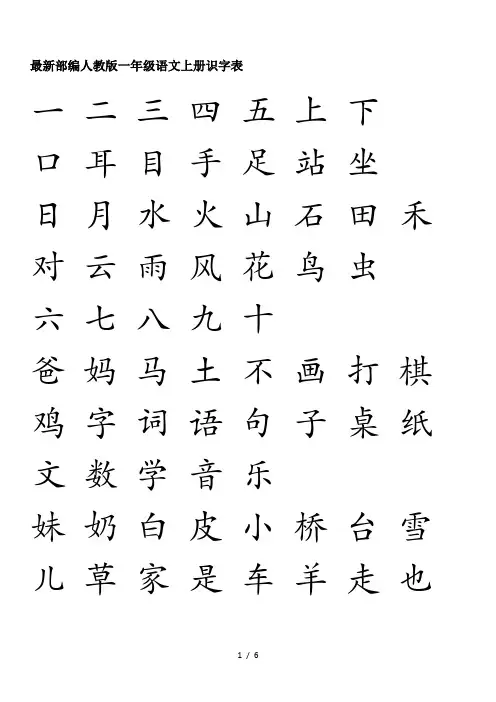 最新部编人教版一年级语文上册识字表
一 二 三 四 五 上 下
口 耳 目 手 足 站 坐
日 月 水 火 山 石 田 禾
对 云 雨 风 花 鸟 虫
六 七 八 九 十
爸 妈 马 土 不 画 打 棋
鸡 字 词 语 句 子 桌 纸
文 数 学 音 乐
妹 奶 白 皮 小 桥 台 雪
儿 草 家 是 车 羊 走 也
1 / 6